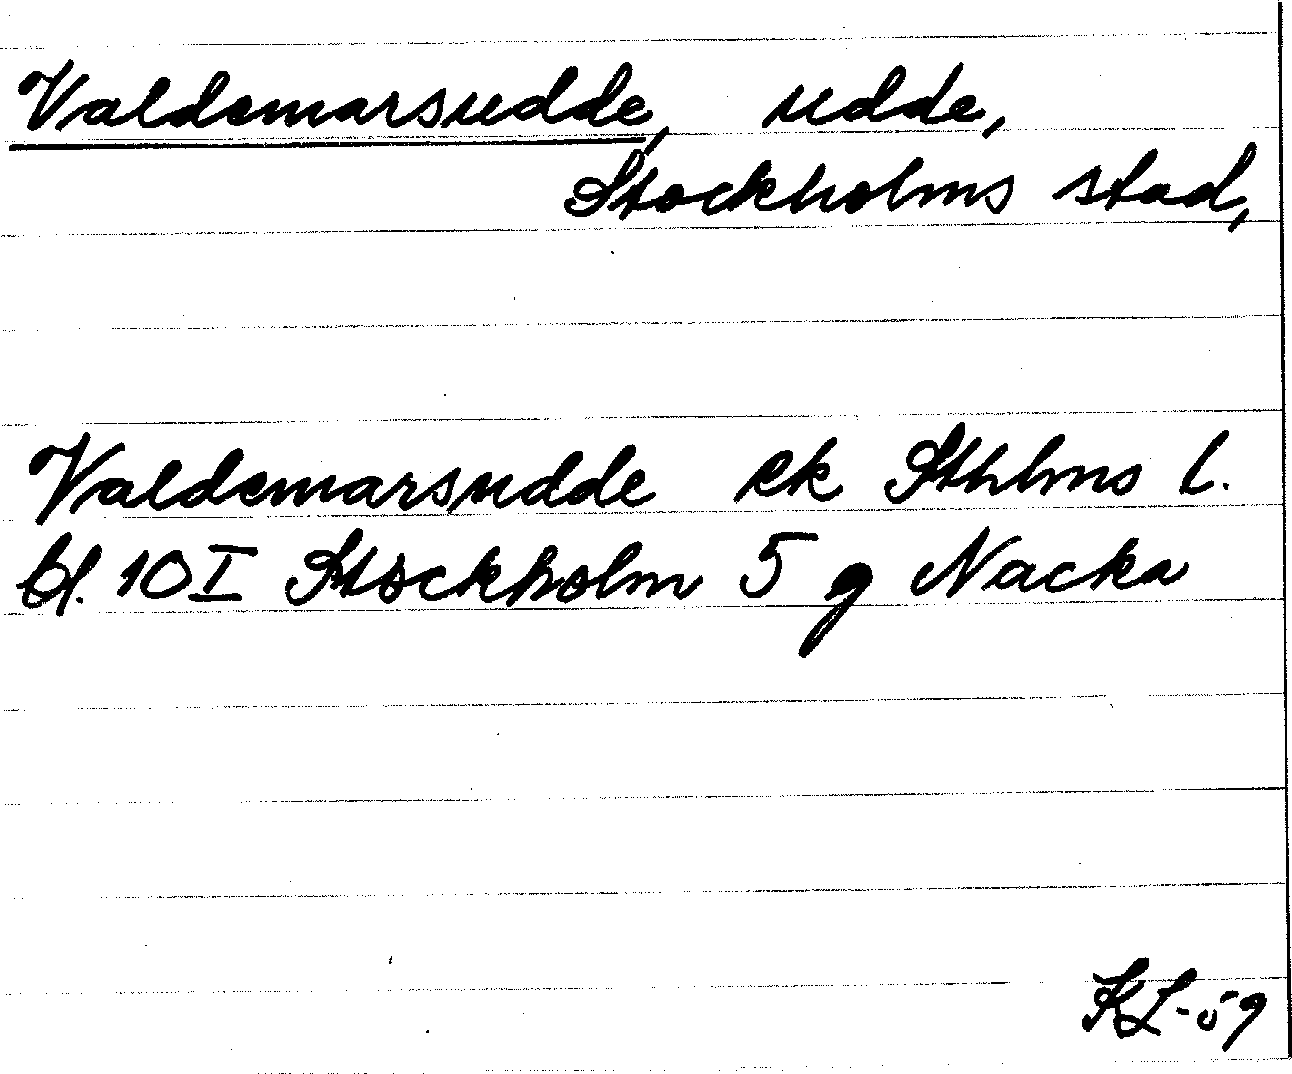 Valdemarsudde, udde,
Stockholms stad,
Valdemarsudde ek Sthlms l.
bl. 10 I Stockholm 5 g Nacka
KL-59